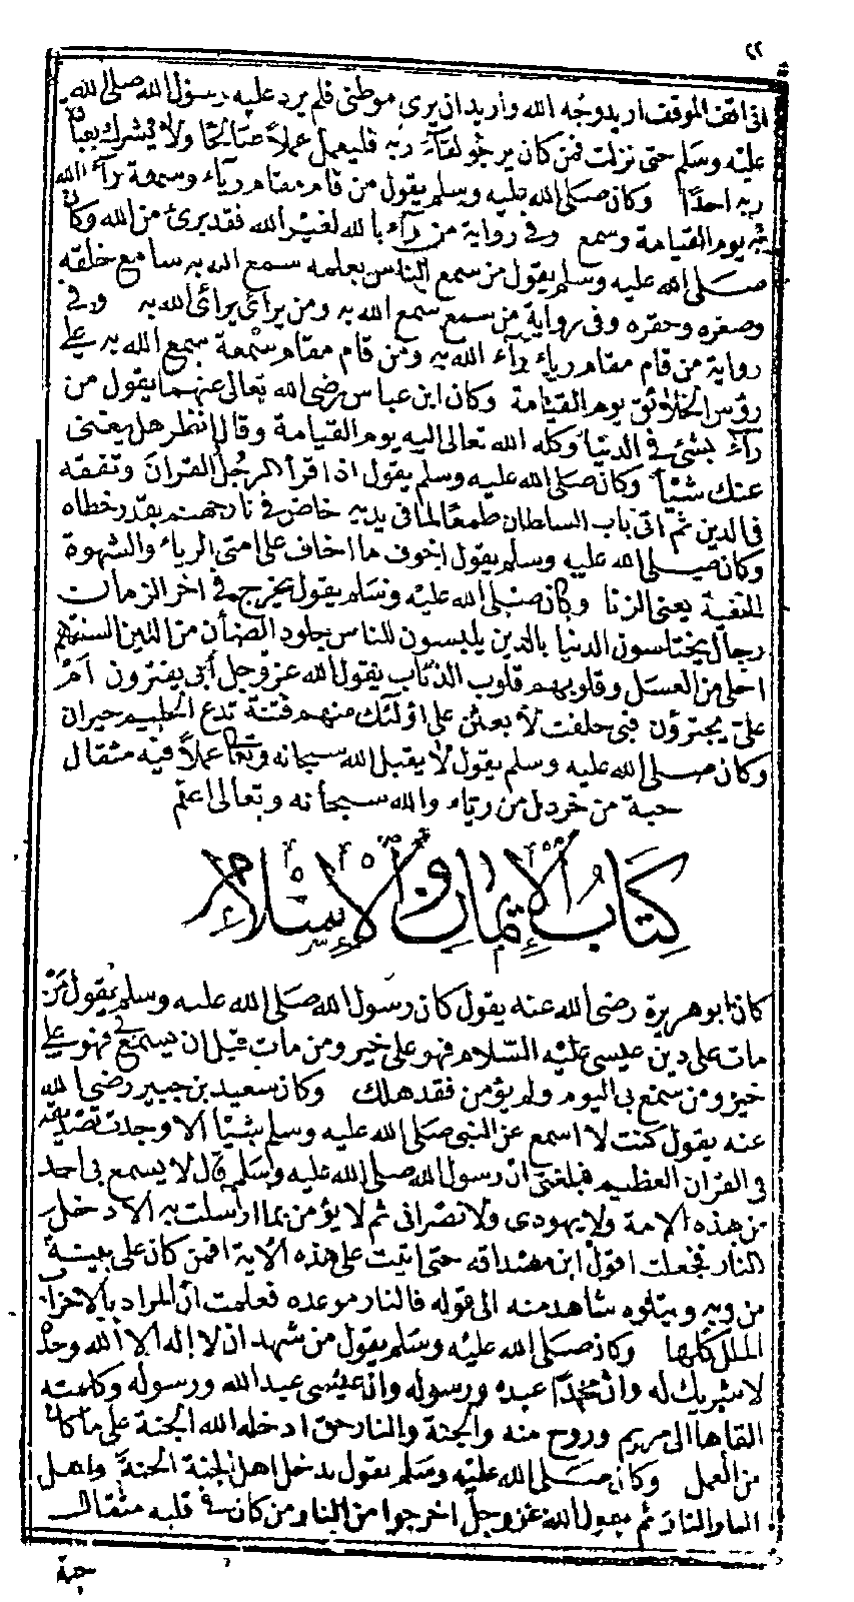 ٢٢
انى اقف الموقف اريد وجه الله واريد ان يرى موطنى فلم يرد عليه رسول الله صلى الله
عليه وسلم حتى نزلت فمن كان يرجو لقآء ربه فليعمل عملا صالحا ولا يشرك بعبادة
ربه احدًا وكان صلى الله عليه وسلم يقول من قام مقام رياء وسمعة رآءى الله
به يوم القيامة وسمع وفى رواية من رآءى بالله لغير الله فقد برئ من الله وكان
صلى الله عليه وسلم يقول من سمع الناس بعلمه سمع الله به سامع خلقه
وصغره وحقره وفى رواية من سمع سمع الله به ومن يرائى يرائى الله به وفى
رواية من قام مقام رياء رآءى الله به ومن قام مقام سمعة سمع الله به على
رؤس الخلائق يوم القيامة وكان ابن عباس رضى الله تعالى عنهما يقول من
رآءى بشئ فى الدنيا وكله الله تعالى اليه يوم القيامة وقال انظر هل يغنى
عنك شيئا وكان صلى الله عليه وسلم يقول اذا قرأ الرجل القرآن وتفقه
فى الدين ثم اتى باب السلطان طمعًا لما فى يديه خاض فى نار جهنم بقدر خطاه
وكان صلى الله عليه وسلم يقول اخوف ما اخاف على امتى الرياء والشهوة
الخفية يعنى الزنا وكان صلى الله عليه وسلم يقول يخرج فى اخر الزمان
رجال يختلسون الدنيا بالدين يلبسون للناس جلود الضأن من اللين السنتهم
احلى من العسل وقلوبهم قلوب الذئاب يقول الله عز وجل أبى يغترون ام
على يجترؤن فبى حلفت لأبعثن على اولئك منهم فتنة تدع الحليم حيران
وكان صلى الله عليه وسلم يقول لا يقبل الله سبحانه وتعالى عملاً فيه مثقال
حبة من خردل من رياء والله سبحانه وتعالى اعلم
كِتَابُ الْإِيمَانِ وَالْإِسْلَامِ
كان ابو هريرة رضى الله عنه يقول كان رسول الله صلى الله عليه وسلم يقول من
مات على دين عيسى عليه السلام فهو على خير ومن مات قبل ان يسمع بى فهو على
خير ومن سمع بى اليوم ولم يؤمن فقد هلك وكان سعيد بن جبير رضى الله
عنه يقول كنت لا اسمع عن النبى صلى الله عليه وسلم شيئا الا وجدت تصديقه
فى القرآن العظيم فبلغنى ان رسول الله صلى الله عليه وسلم قال لا يسمع بى احد
من هذه الامة ولا يهودى ولا نصرانى ثم لا يؤمن بما ارسلت به الا دخل
النار فجعلت اقول اين مصداقه حتى اتيت على هذه الآية افمن كان على بينة
من ربه ويتلوه شاهد منه الى قوله فالنار موعده فعلمت ان المراد بالاحزاب
الملل كلها وكان صلى الله عليه وسلم يقول من شهد ان لا إله الا الله وحده
لا شريك له وان محمدًا عبده ورسوله وان عيسى عبد الله ورسوله وكلمته
القاها الى مريم وروح منه والجنة والنار حق ادخله الله الجنة على ما كان
من العمل وكان صلى الله عليه وسلم يقول يدخل اهل الجنة الجنة واهل
النار النار ثم يقول الله عز وجل اخرجوا من النار من كان فى قلبه مثقال
حبة